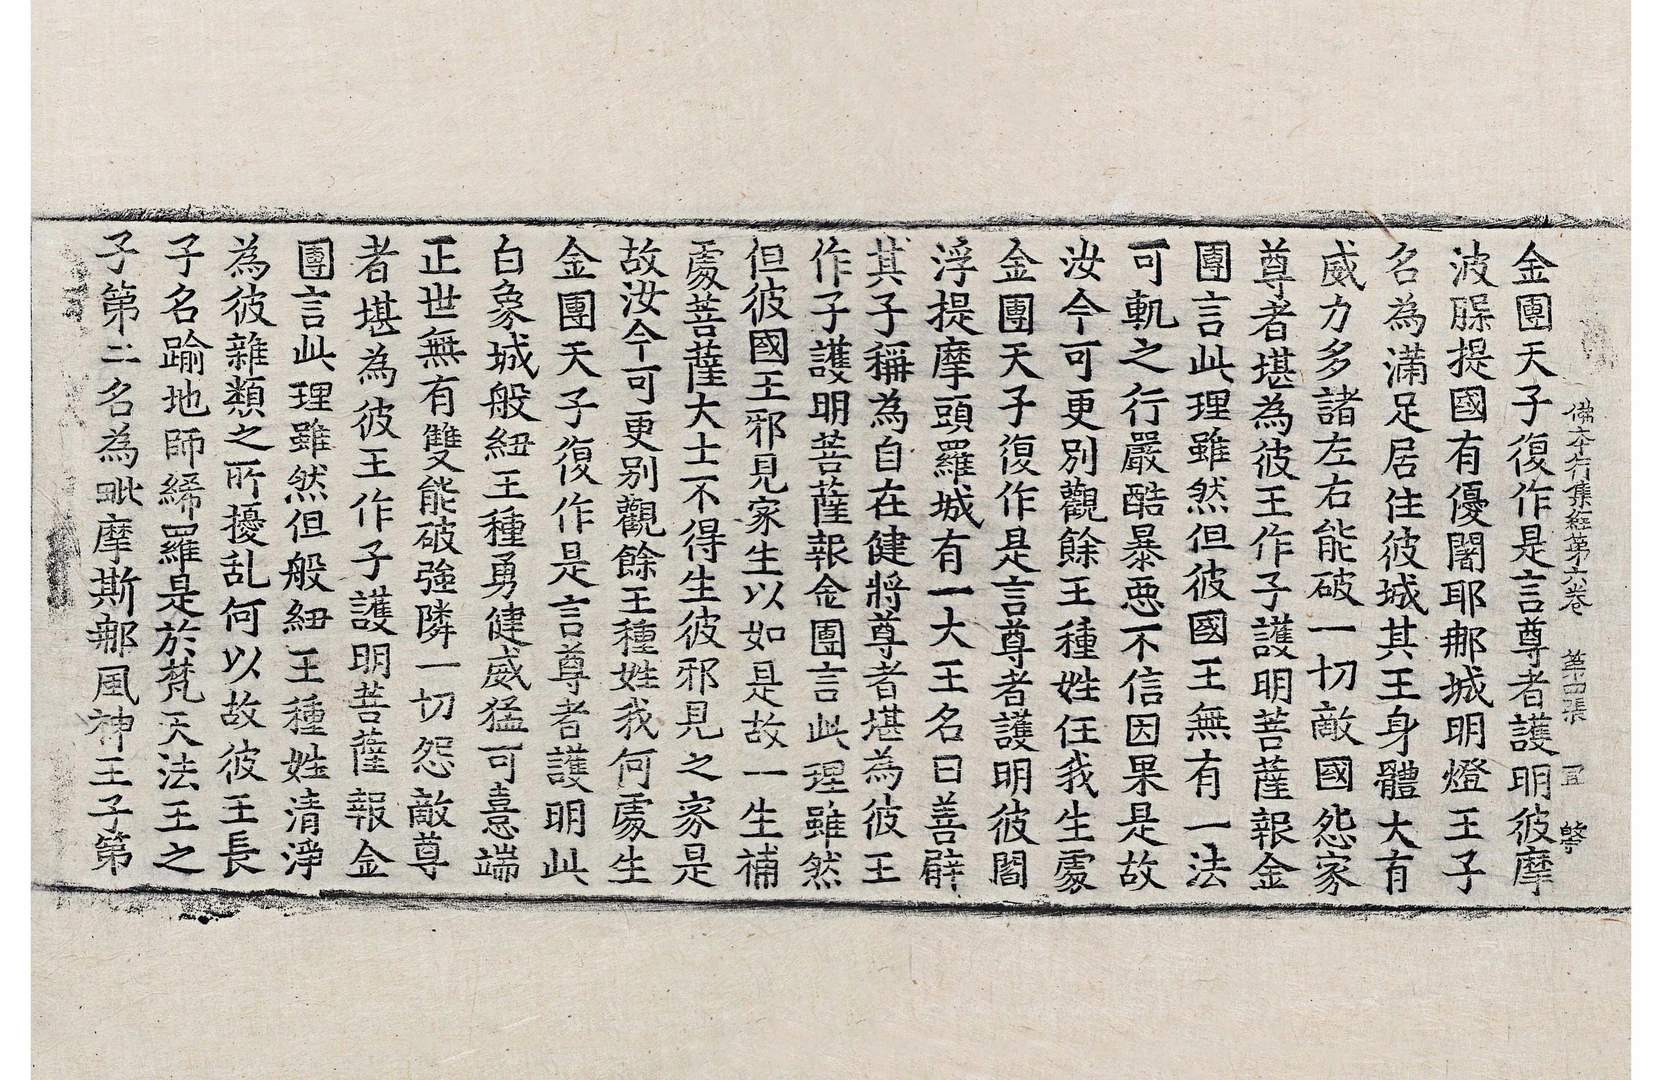 佛本行集經第六卷 第四張
金團天子復作是言尊者護明彼摩
波𦜮提國有優闍耶那城明燈王子
名為滿足居住彼城其王身體大有
威力多諸左右能破一切敵國怨家
尊者堪為彼王作子護明菩薩報金
團言此理雖然但彼國王無有一法
可軌之行嚴酷暴惡不信因果是故
汝今可更別觀餘王種姓任我生處
金團天子復作是言尊者護明彼閻
浮提摩頭羅城有一大王名曰善辟
其子稱為自在健將尊者堪為彼王
作子護明菩薩報金團言此理雖然
但彼國王邪見家生以如是故一生補
處菩薩大士不得生彼邪見之家是
故汝今可更別觀餘王種姓我何處生
金團天子復作是言尊者護明此
白象城般紐王種勇健威猛可憙端
正世無有雙能破強隣一切怨敵尊
者堪為彼王作子護明菩薩報金
團言此理雖然但般紐王種姓清淨
為彼雜類之所擾乱何以故彼王長
子名踰地師絺羅是於梵天法王之
子第二名為毗摩斯那風神王子第